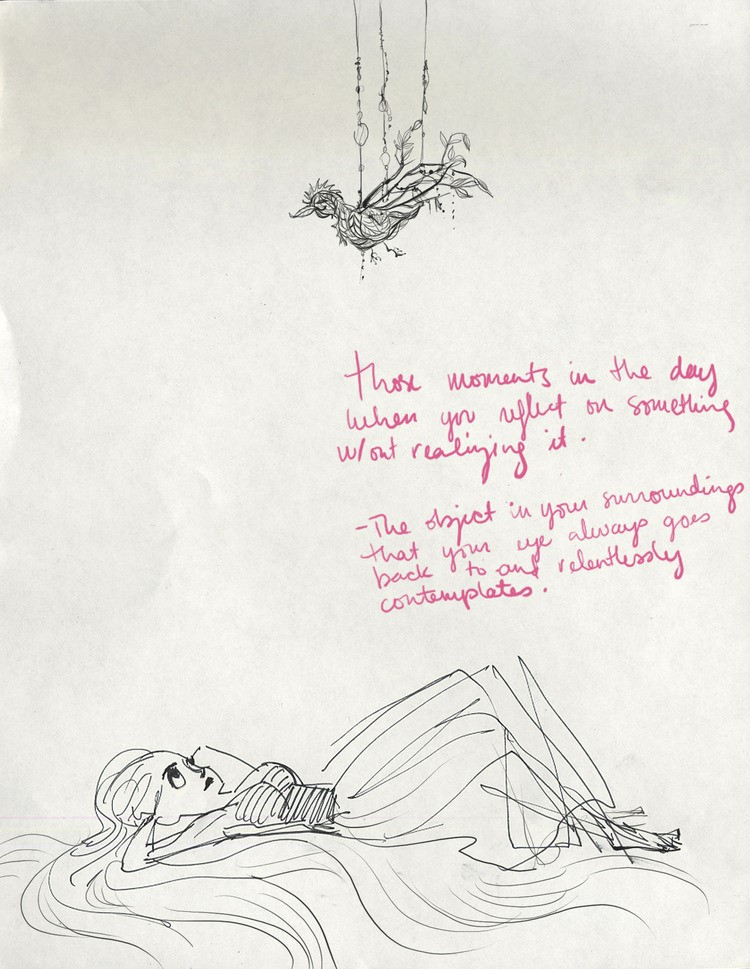 those moments in the day
when you reflect on something
w/out realizing it.
-The object in your surroundings
that your eye always goes
back to and relentlessly
contemplates.